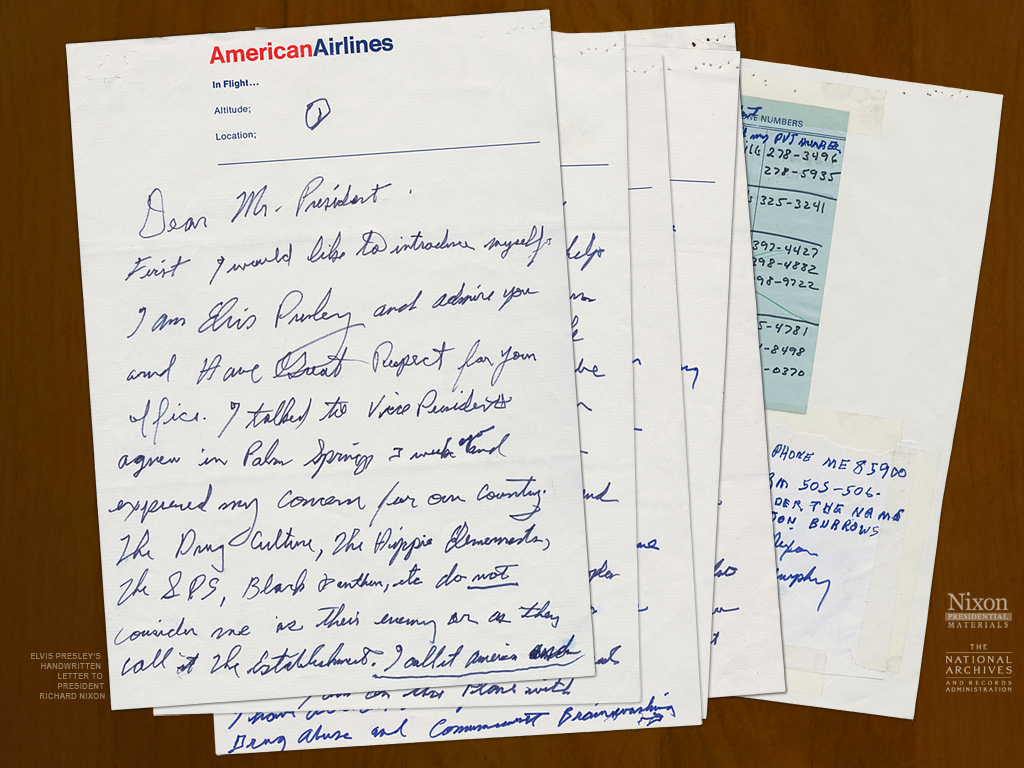 AmericanAirlines
In Flight...
Altitude;
Location;
1
Dear Mr. President.
First I would like to introduce myself.
I am Elvis Presley and admire you
and Have Great Respect for your
office. I talked to Vice President
agnew in Palm Springs 3 weeks ago and
expressed my concern for our country.
The Drug Culture, The Hippie Elements,
The SDS, Black Panthers, etc do not
consider me as their enemy or as they
call it The Establishment. I call it america and
Drug Abuse and Communist Brainwashing
help
and
NE NUMBERS
my PVT NUMBER
278-3496
278-5935
325-3241
397-4427
98-4882
98-9722
5-4781
-8498
-0370
PHONE ME 85900
RM 505-506-
DER THE NAME
JON BURROWS
ELVIS PRESLEY'S
HANDWRITTEN
LETTER TO
PRESIDENT
RICHARD NIXON
Nixon
PRESIDENTIAL
MATERIALS
THE
NATIONAL
ARCHIVES
AND RECORDS
ADMINISTRATION